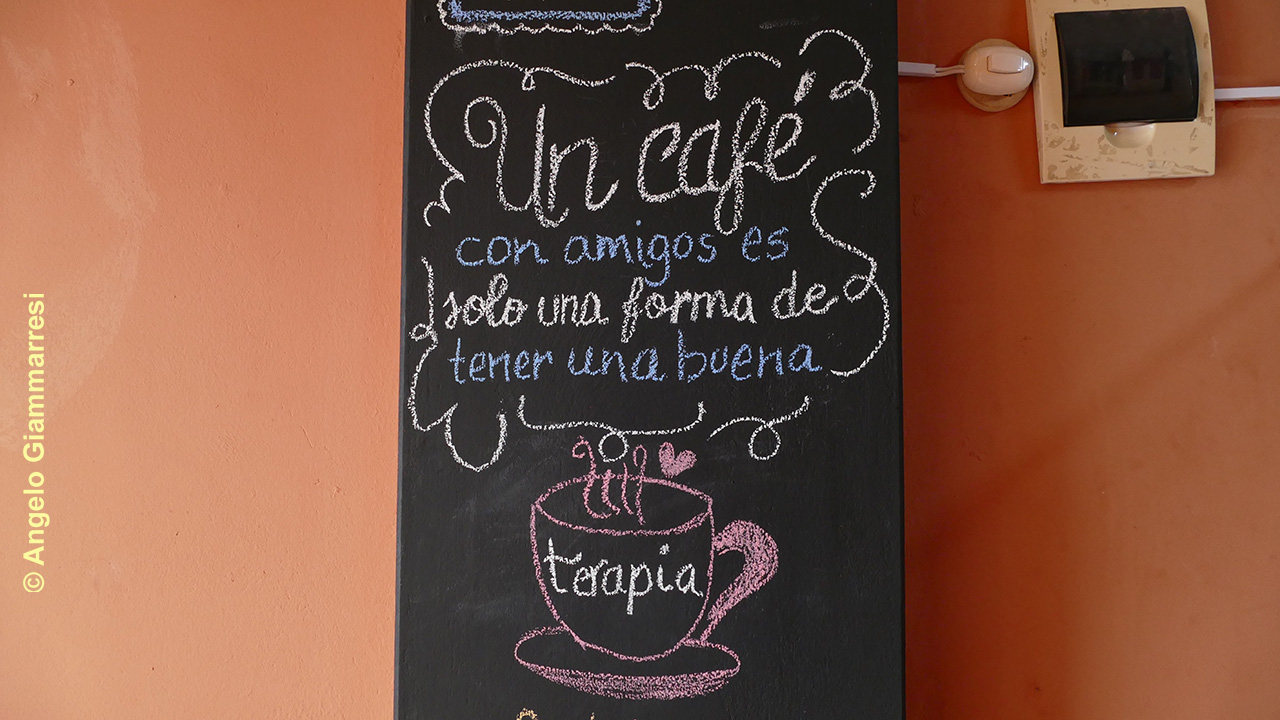 Un café
con amigos es
solo una forma de
tener una buena
terapia
© Angelo Giammarresi